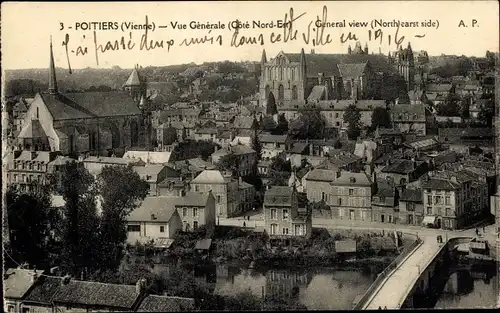 3 - POITIERS (Vienne) - Vue Générale (Côté Nord-Est) General view (North earst side) A. P.
j'ai passé huit mois dans cette ville en 1916